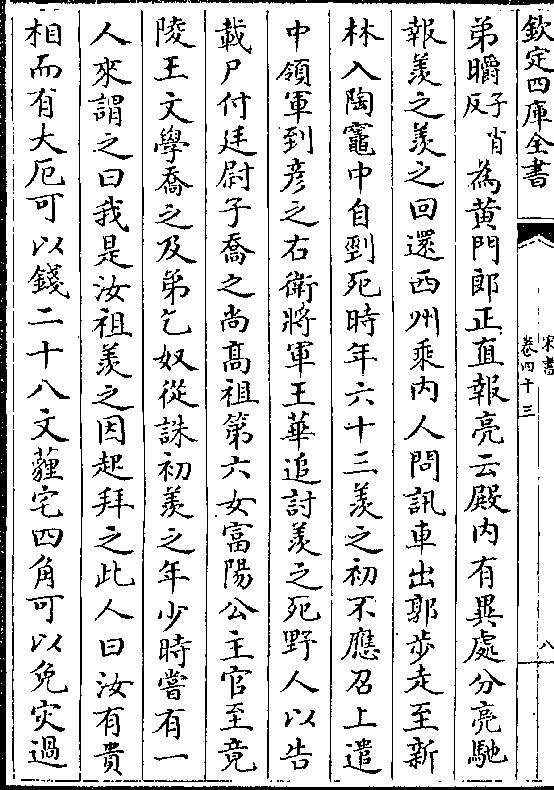 欽定四庫全書
宋書
卷四十三
八
弟㬭子肖反為黄門郎正直報亮云殿内有異處分亮馳
報羡之羡之回還西州乘内人問訊車出郭步走至新
林入陶竈中自剄死時年六十三羡之初不應召上遣
中領軍到彦之右衛將軍王華追討羡之死野人以告
載尸付廷尉子喬之尚髙祖第六女富陽公主官至竟
陵王文學喬之及弟乞奴從誅初羡之年少時嘗有一
人來謂之曰我是汝祖羡之因起拜之此人曰汝有貴
相而有大厄可以錢二十八文薶宅四角可以免灾過